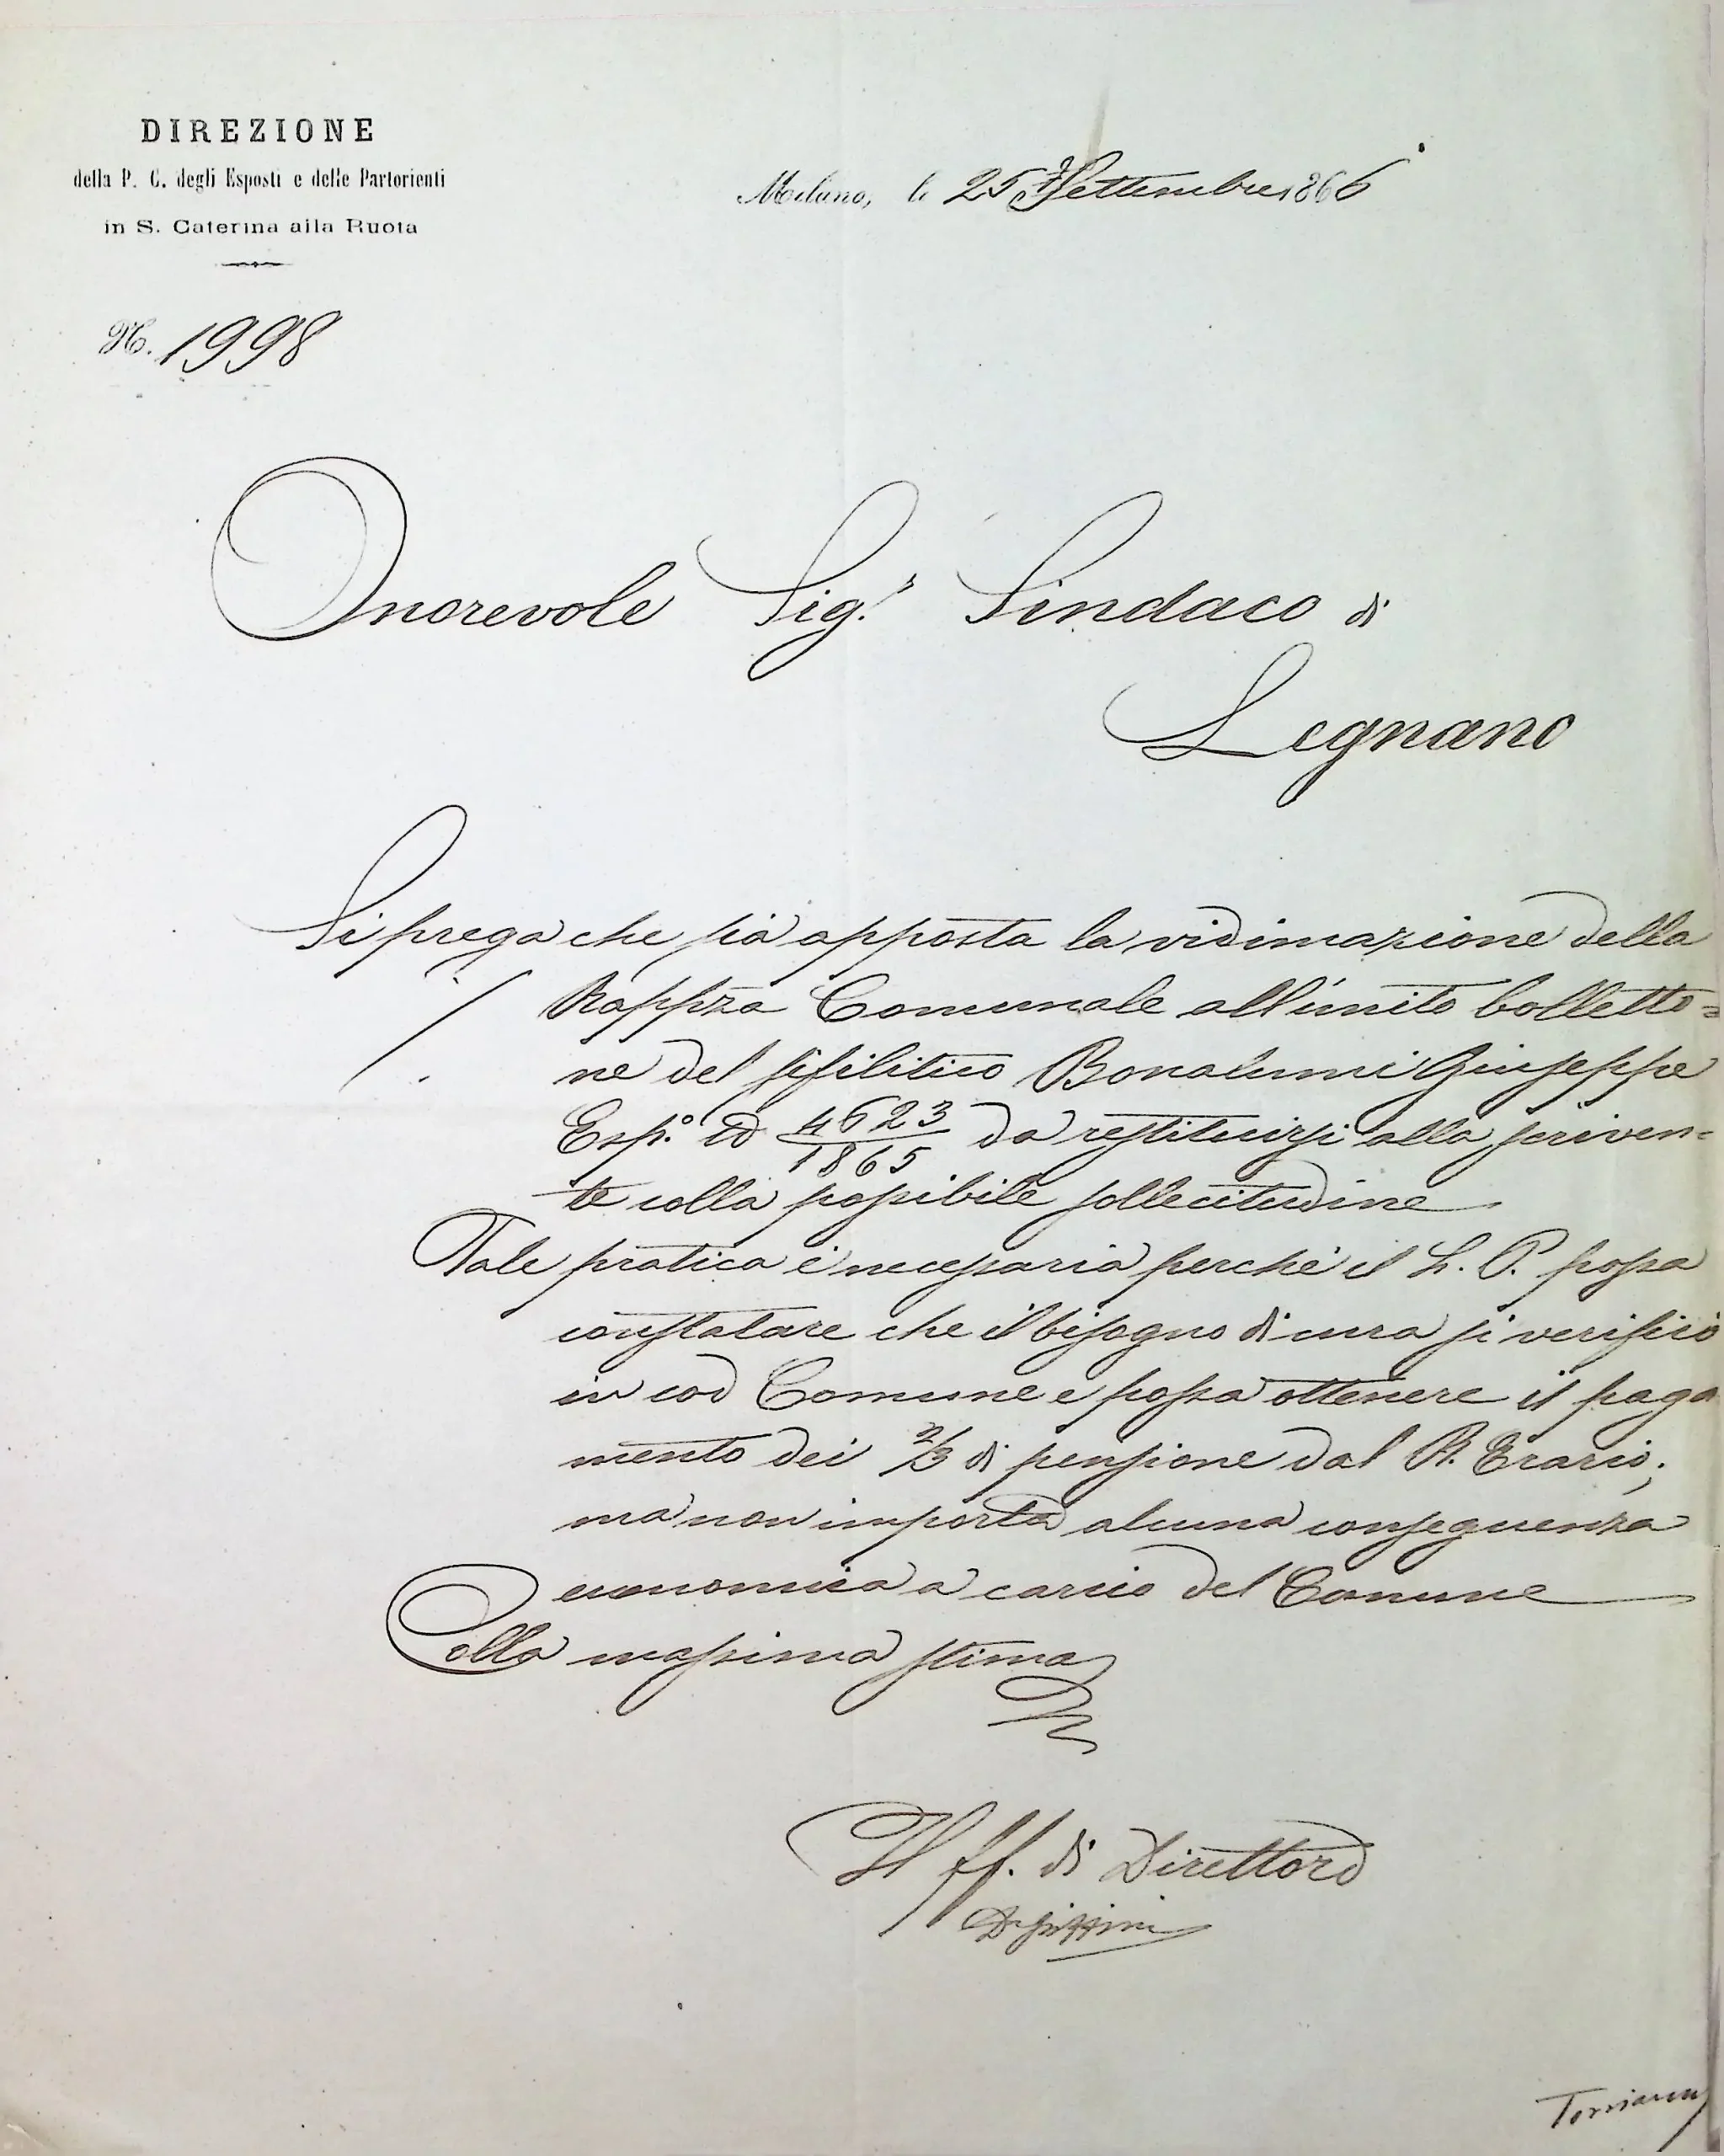 DIREZIONE
della P. C. degli Esposti e delle Partorienti
in S. Caterina alla Ruota
Milano, li 25 Settembre 1866
N. 1998
Onorevole Sig.r Sindaco di
Legnano
Si prega che sia apposta la vidimazione della
Rappza Comunale all'unito bolletto=
ne del sifilitico Bonalumi Giuseppe
Esp.o ed 4623/1865 da restituirsi alla scriven=
te colla possibile sollecitudine
Tale pratica è necessaria perchè il L. P. possa
constatare che il bisogno di cura si verificò
in cod Comune e possa ottenere il paga
mento dei 2/3 di pensione dal R. Erario;
ma non importa alcuna conseguenza
economica a carico del Comune
Colla massima stima
Il ff. di Direttore